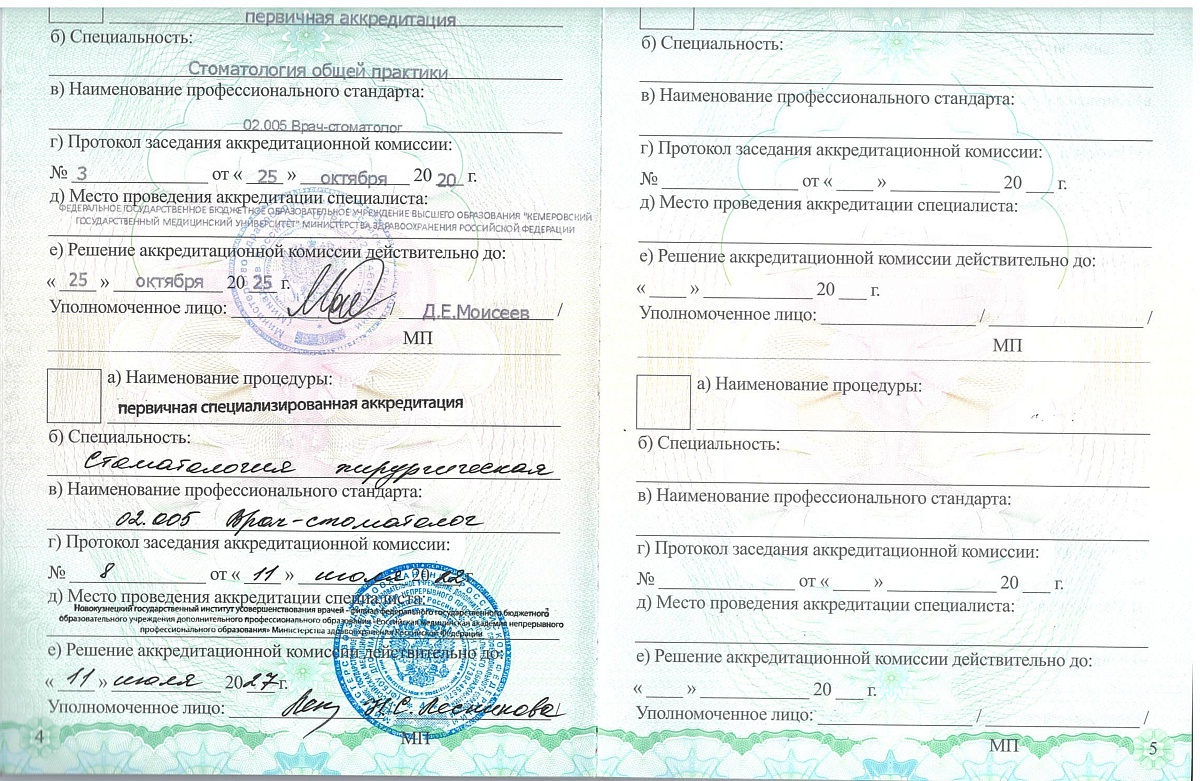 первичная аккредитация
б) Специальность:
Стоматология общей практики
в) Наименование профессионального стандарта:
02.005 Врач-стоматолог
г) Протокол заседания аккредитационной комиссии:
№ 3 от « 25 » октября 20 20 г.
д) Место проведения аккредитации специалиста:
ФЕДЕРАЛЬНОЕ ГОСУДАРСТВЕННОЕ БЮДЖЕТНОЕ ОБРАЗОВАТЕЛЬНОЕ УЧРЕЖДЕНИЕ ВЫСШЕГО ОБРАЗОВАНИЯ "КЕМЕРОВСКИЙ
ГОСУДАРСТВЕННЫЙ МЕДИЦИНСКИЙ УНИВЕРСИТЕТ" МИНИСТЕРСТВА ЗДРАВООХРАНЕНИЯ РОССИЙСКОЙ ФЕДЕРАЦИИ
е) Решение аккредитационной комиссии действительно до:
« 25 » октября 20 25 г.
Уполномоченное лицо: / Д.Е.Моисеев /
МП
а) Наименование процедуры:
первичная специализированная аккредитация
б) Специальность:
Стоматология хирургическая
в) Наименование профессионального стандарта:
02.005 Врач-стоматолог
г) Протокол заседания аккредитационной комиссии:
№ 8 от « 11 » июля 20 22 г.
д) Место проведения аккредитации специалиста:
Новокузнецкий государственный институт усовершенствования врачей - филиал федерального государственного бюджетного
образовательного учреждения дополнительного профессионального образования «Российская Медицинская академия непрерывного
профессионального образования» Министерства здравоохранения Российской Федерации
е) Решение аккредитационной комиссии действительно до:
« 11 » июля 20 27 г.
Уполномоченное лицо:
МП
4
б) Специальность:
в) Наименование профессионального стандарта:
г) Протокол заседания аккредитационной комиссии:
№ от « » 20 г.
д) Место проведения аккредитации специалиста:
е) Решение аккредитационной комиссии действительно до:
« » 20 г.
Уполномоченное лицо: / /
МП
а) Наименование процедуры:
б) Специальность:
в) Наименование профессионального стандарта:
г) Протокол заседания аккредитационной комиссии:
№ от « » 20 г.
д) Место проведения аккредитации специалиста:
е) Решение аккредитационной комиссии действительно до:
« » 20 г.
Уполномоченное лицо: / /
МП
5